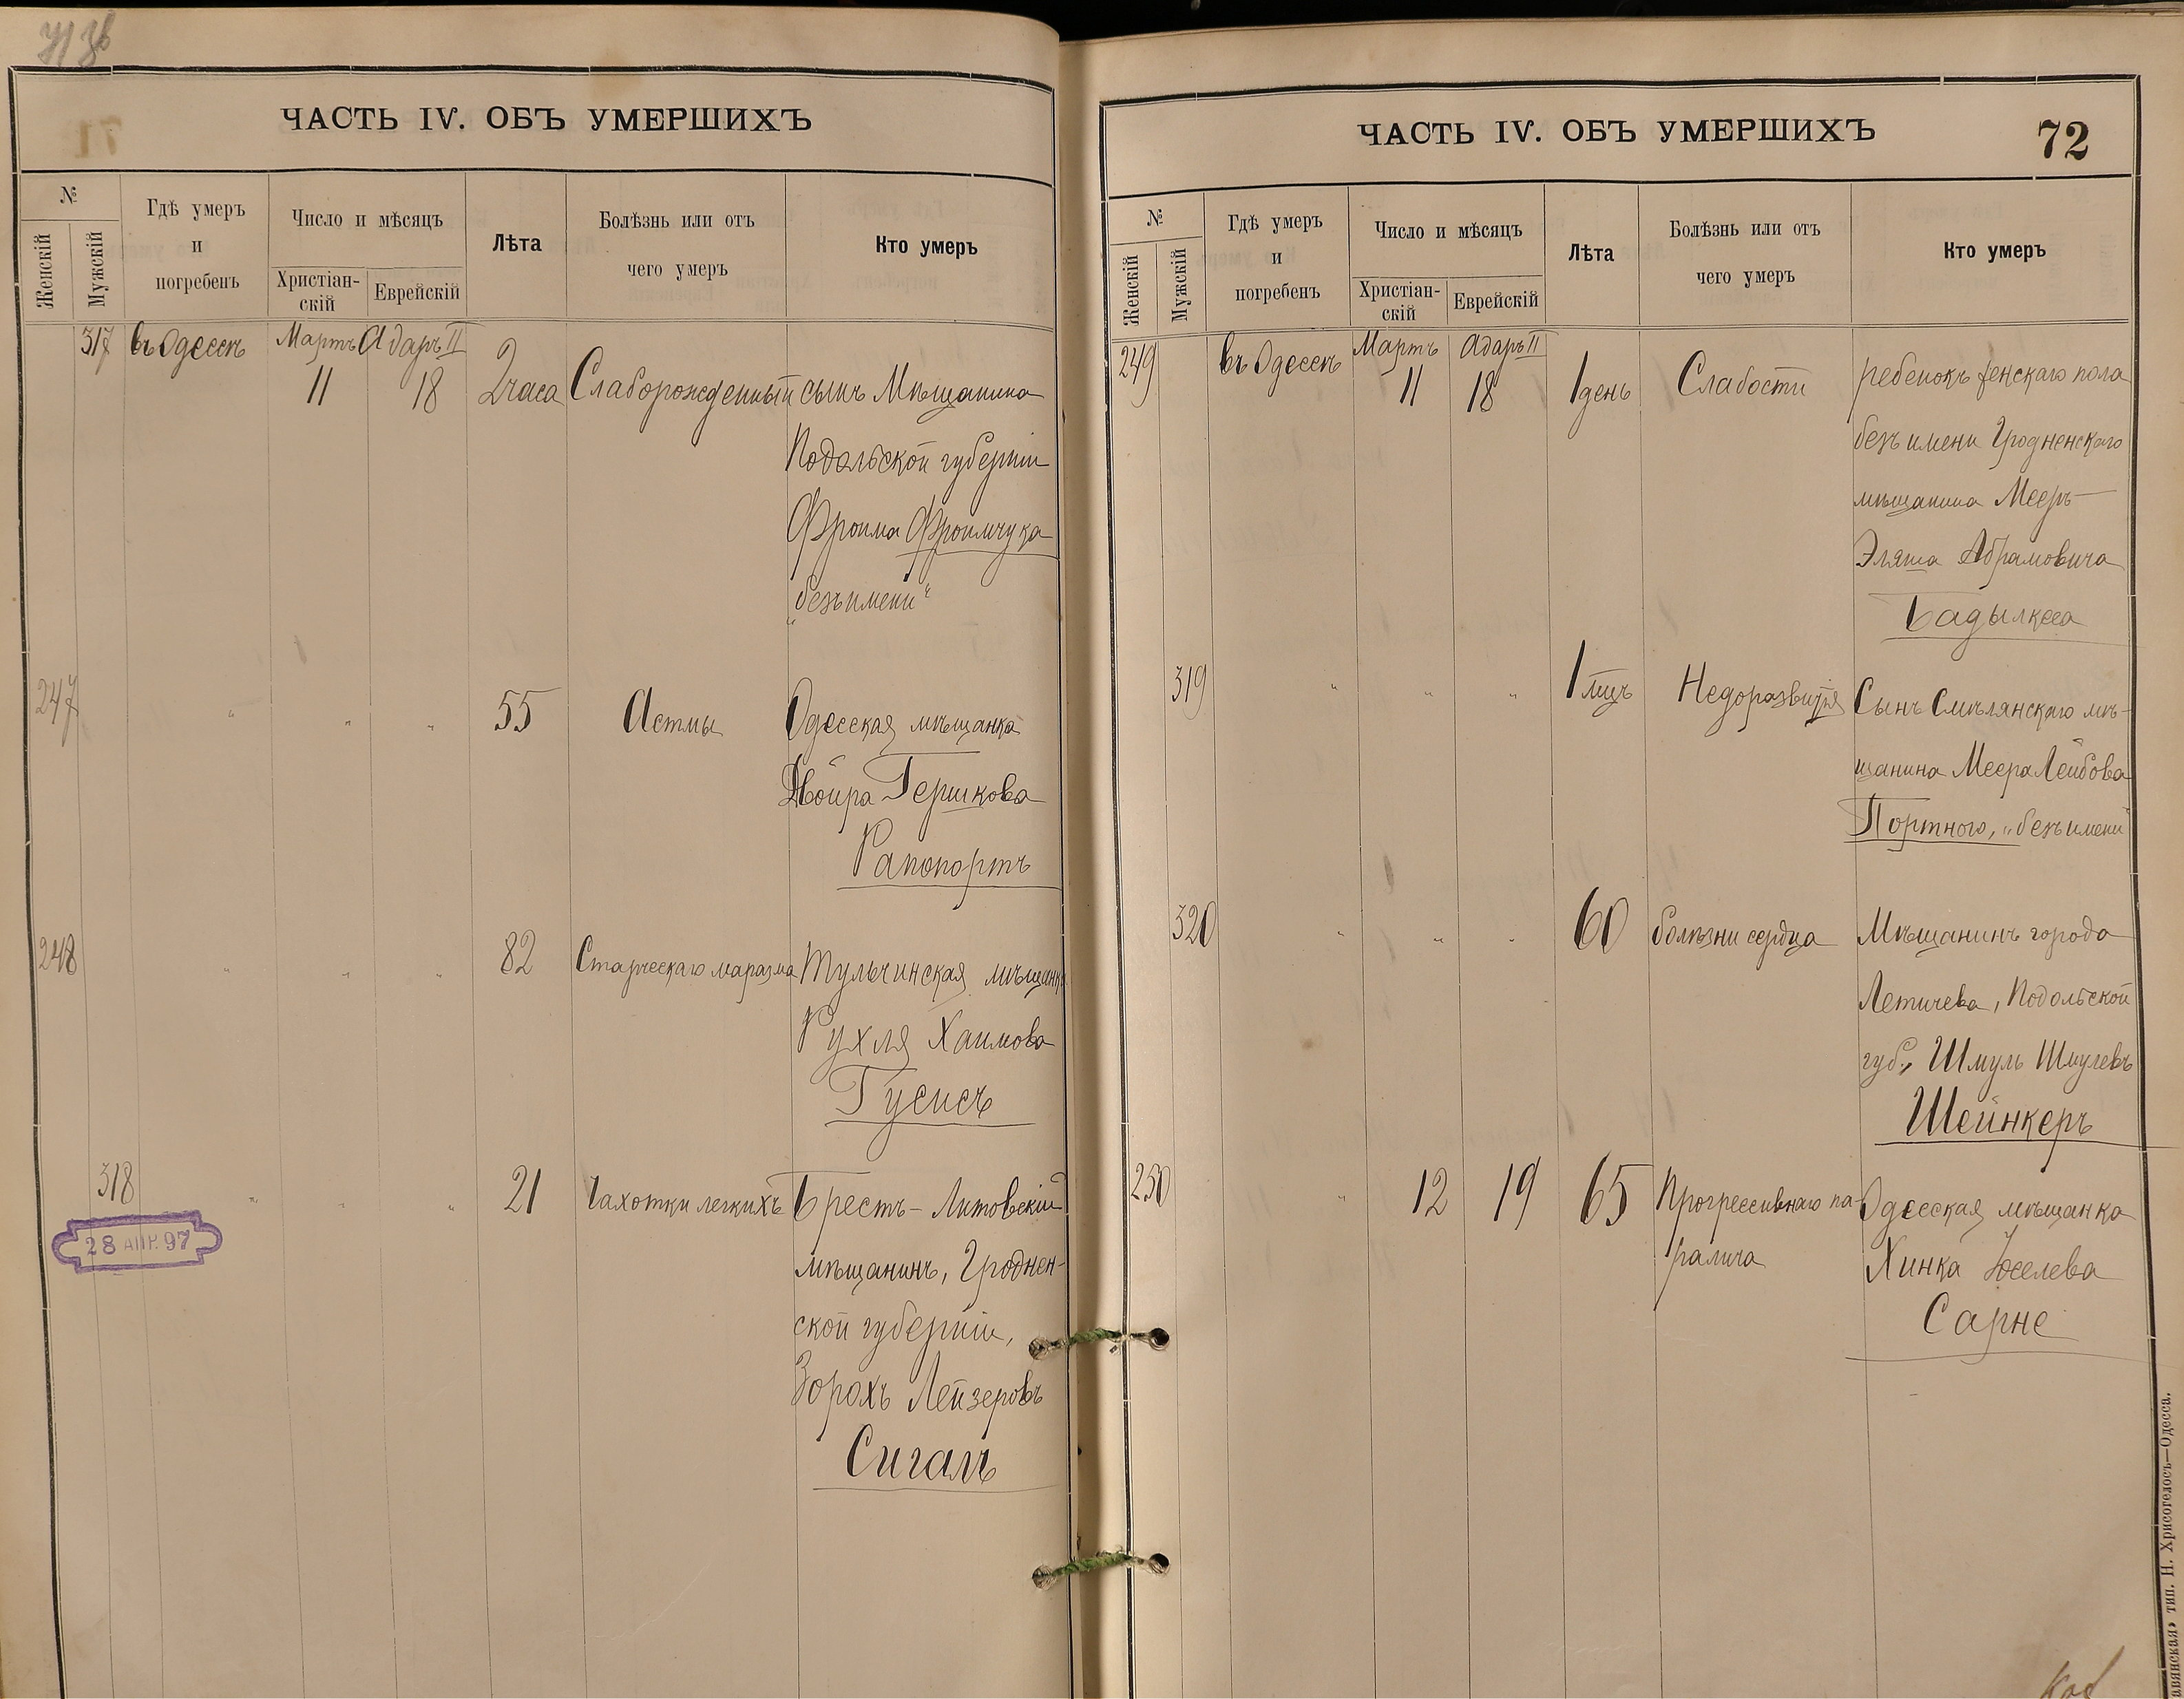 ЧАСТЬ IV. ОБЪ УМЕРШИХЪ
№
Женскій
Мужскій
Гдѣ умеръ
и
погребенъ
Число и мѣсяцъ
Христіан-
скій
Еврейскій
Лѣта
Болѣзнь или отъ
чего умеръ
Кто умеръ
317 въ Одессѣ Мартъ Адаръ II
11 18 2 часа Слаборожденный сынъ Мѣщанина
Подольской губерніи
Фроима Фроимчука
"безъ имени"
247 " " " 55 Астмы Одесская мѣщанка
Двойра Гершкова
Рапопортъ
248 " " " 82 Старческаго маразма Тульчинская мѣщанка
Рухля Хаимова
Гусисъ
318 " " " 21 Чахотки легкихъ Брестъ-Литовскій
28 АПР. 97
мѣщанинъ, Гроднен-
ской губерніи,
Зорохъ Лейзеровъ
Сигалъ
ЧАСТЬ IV. ОБЪ УМЕРШИХЪ
72
№
Женскій
Мужскій
Гдѣ умеръ
и
погребенъ
Число и мѣсяцъ
Христіан-
скій
Еврейскій
Лѣта
Болѣзнь или отъ
чего умеръ
Кто умеръ
249 въ Одессѣ Мартъ Адаръ II
11 18 1 день Слабости ребенокъ женскаго пола
безъ имени Гродненскаго
мѣщанина Мееръ-
Эляша Абрамовича
Бадылкеса
319 " " " 1 мцъ Недоразвитія Сынъ Смѣлянскаго мѣ-
щанина Меера Лейбова
Портного, "безъ имени"
320 " " " 60 болѣзни сердца Мѣщанинъ города
Летичева, Подольской
губ., Шмуль Шмулевъ
Шейнкеръ
250 " 12 19 65 Прогрессивнаго па- Одесская мѣщанка
ралича Хинка Іоселева
Сарне
тип. Н. Хрисогелосъ—Одесса.